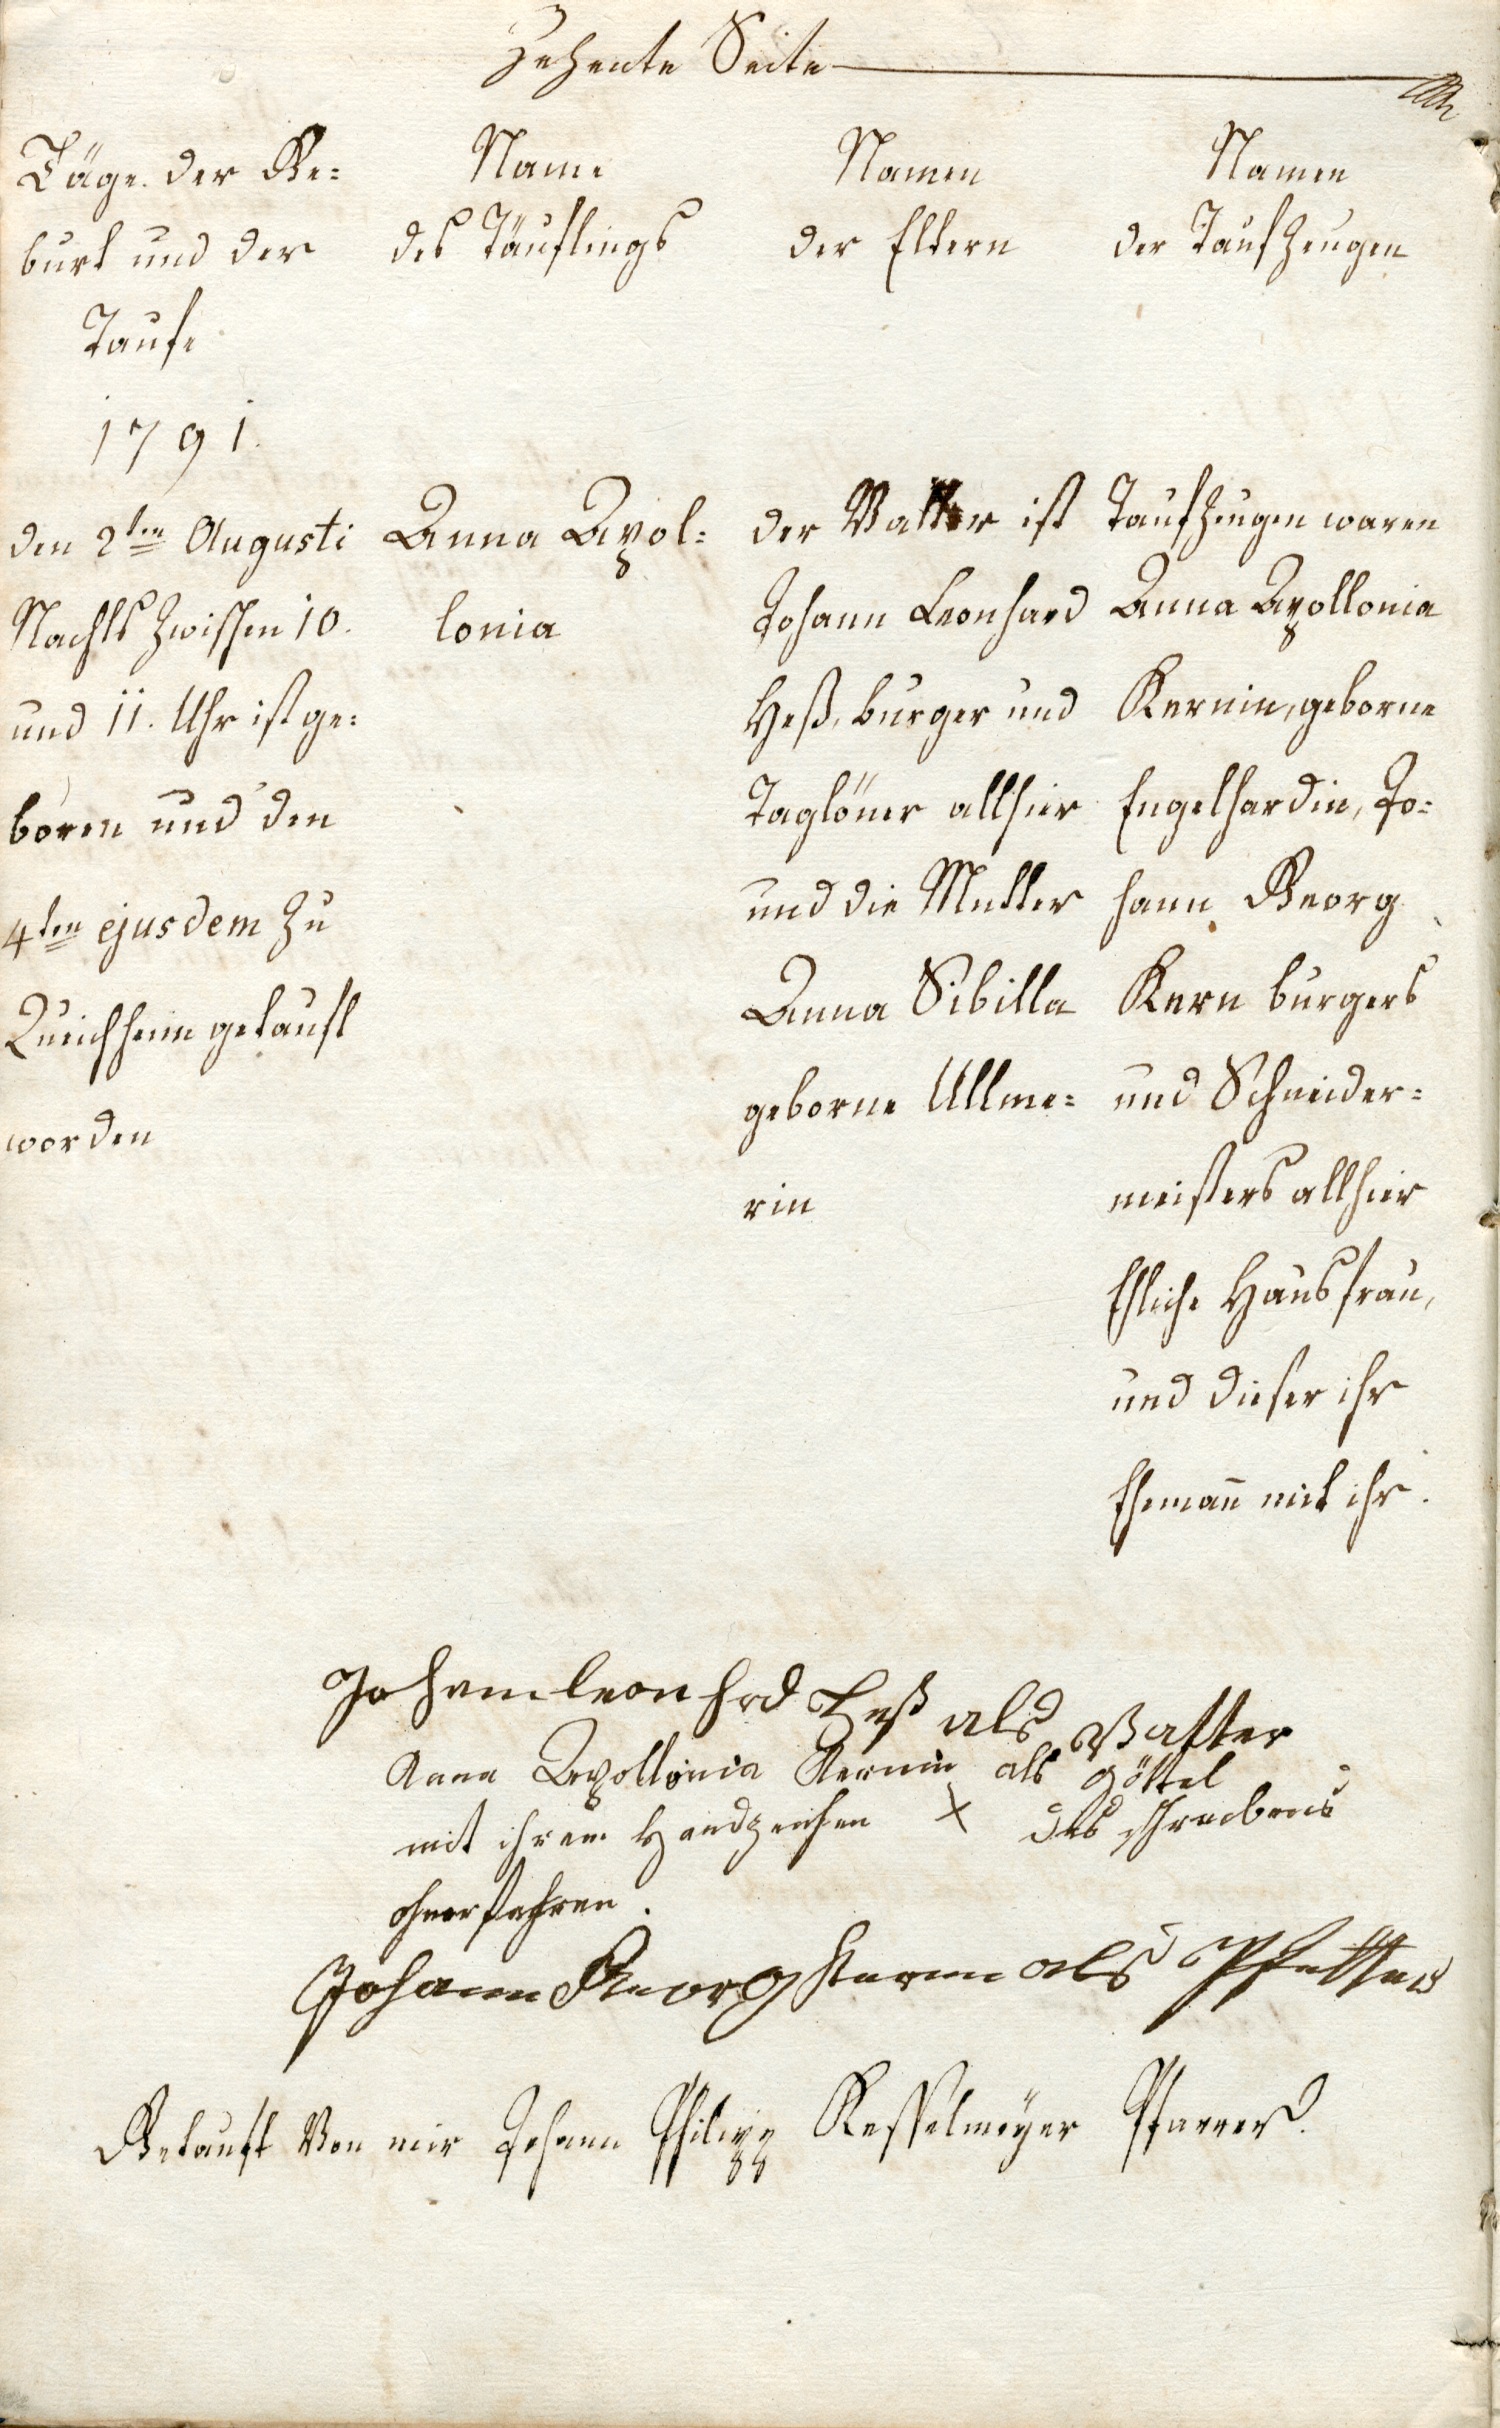 Zehente Seite
Täge der Ge=
burt und der
Taufe
1791.
den 2ten Augusti
Nachts zwischen 10.
und 11. Uhr ist ge=
boren und den
4ten ejusdem zu
Queichheim getauft
worden
Name
des Täuflings
Anna Apol=
lonia
Namen
der Eltern
der Vatter ist
Johann Leonhard
Heß, burger und
Taglöner allhier
und die Mutter
Anna Sibilla
geborne Ullme=
rin
Namen
der Taufzeugen
Taufzeugen waren
Anna Apollonia
Kernin, geborne
Engelhardin, Jo=
hann Georg
Kern burgers
und Schneider=
meisters allhier
Ehliche Hausfrau,
und dieser ihr
Ehemañ mit ihr.
Johann leonhrd Heß als Vatter
Anna Apollonia Kernin als Göttel
mit ihrem Handzeichen X des schreibens
ohnerfahren.
Johann Georg Kern als Pfetter
Getauft Von mir Johann Philipp Kesselmeyer Pfarrer.